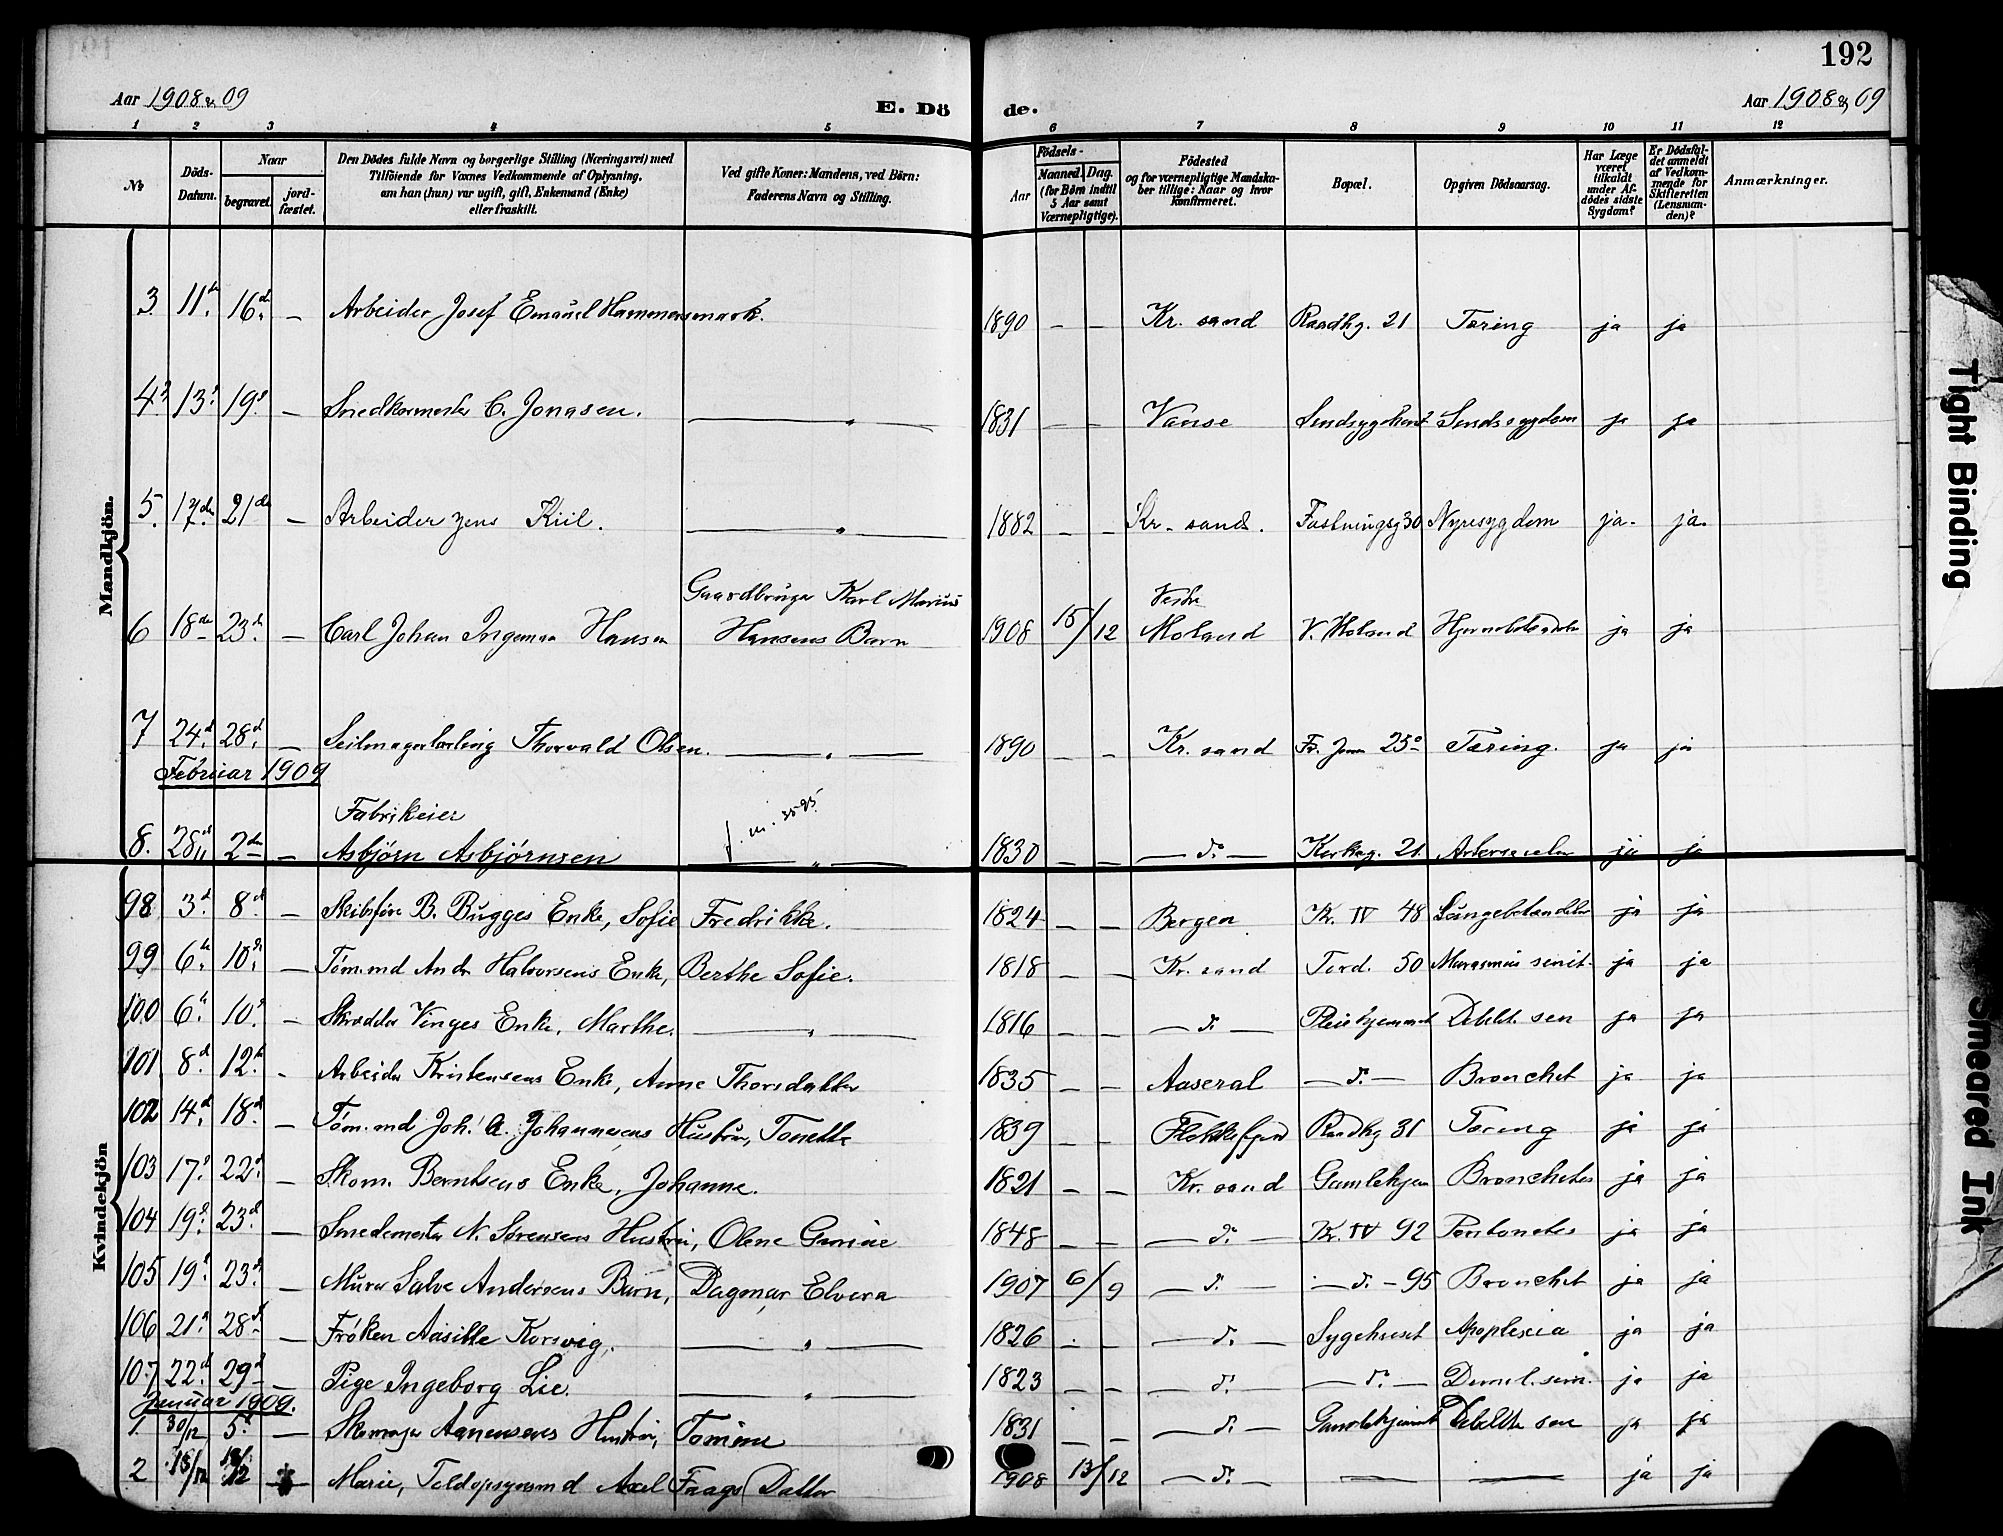 192
Aar 1908 & 09
E. Dö
de.
Aar 1908 & 09
1 2 3 4 5 6 7 8 9 10 11 12
No
Döds-Datum.
Naar
begravet.
jord-fæstet.
Den Dödes fulde Navn og borgerlige Stilling (Næringsvei) med
Tilföiende for Voxnes Vedkommende af Oplysning.
om han (hun) var ugift, gift, Enkemand (Enke)
eller fraskilt.
Ved gifte Koner: Mandens, ved Börn:
Faderens Navn og Stilling.
Födsels-
Aar
Maaned. Dag.
(for Börn indtil
5 Aar samt
Værnepligtige).
Födested
og for værnepligtige Mandska-
ber tillige: Naar og hvor
konfirmeret.
Bopæl.
Opgiven Dödsaarsag.
Har Læge
været
tilkaldt
under Af-
dödes sidste
Sygdom?
Er Dödsfal-
det anmeldt
af Vedkom-
mende for
Skifteretten
(Lensman-
den)?
Anmærkninger.
Mandkjön.
3 11te 16de — Arbeider Josef Emanuel Hammersmark. 1890 — — Kr. sand Raadhg. 21 Tæring ja ja
4 13de 19de — Snedkermester C. Jonasen. — " — 1831 — — Vanse Sindssygdom ja ja
5. 17de 21de — Arbeider Jens Kiil. — " — 1882 — — Kr. sand. Fæstningsg 30 Nyresygdom ja. ja.
Gaardbruger Karl Marius
Vestre
6 18de 23de — Carl Johan Ingeman Hansen Hansens Barn 1908 15/12 Moland V. Moland ja ja
7 24de 28de — Seilmagerlærling Thorvald Olsen. — " — 1890 — — Kr. sand 25 Tæring. ja ja
Februar 1909
Fabrikeier
8. 28de 2den — Asbjørn Asbjørnsen — " — 1830 — — — do — Kirkeg. 21 ja ja
Kvindekjön
98 3d. 8d. — Skibsfører B. Bugges Enke, Sofie Fredrikke. 1824 — — Bergen Kr. IV 48 Lungebetændelse ja ja
99 6te 10de — Tøm.md Andr. Halvorsens Enke, Berthe Sofie. 1818 — — Kr. sand Tord. 50 Marasmus senil. ja ja
100 6te 10de — Skrædder Vinges Enke, Marthe. — " — 1816 — — — do — Pleiehjemmet Debilit. sen ja ja
101 8d. 12te — Arbeider Kristensens Enke, Anne Thorsdatter 1835 — — Aaseral — do — Bronchit ja ja
102 14d. 18d. — Tøm.md Joh. A. Johannesens Hustru, Tonette 1839 — — Flekkefjord Raadhg 31 Tæring ja ja
103 17de 22d. — Skom. Berntsens Enke, Johanne. 1821 — — Kr. sand Gamlehjem Bronchites ja ja
104 19de 23de — Smedemester N. Sørensens Hustru, Olene Gurine 1848 — — — do — Kr. IV 92 ja ja
105 19de 23de — Murer Salve Andersens Barn, Dagmar Elvera 1907 6/9 — do — — do — 95 Bronchit ja ja
106 21de 28de — Frøken Aasille Korsvig. — " — 1826 — — — do — Sygehuset Apoplexia ja ja
107 22d. 29d. — Pige Ingeborg Lie. — " — 1823 — — — do — — do — ja ja
Januar 1909.
1. 30/12 5te — Skomager Aanensens Hustru, Tomine 1831 — — — do — Gamlehjemmet Debilit. sen ja ja
2 13/12 — Marie, Toldopsynsmd Axel Faags Datter 1908 13/12 — do — — — ja ja
Tight Binding
Smeared Ink